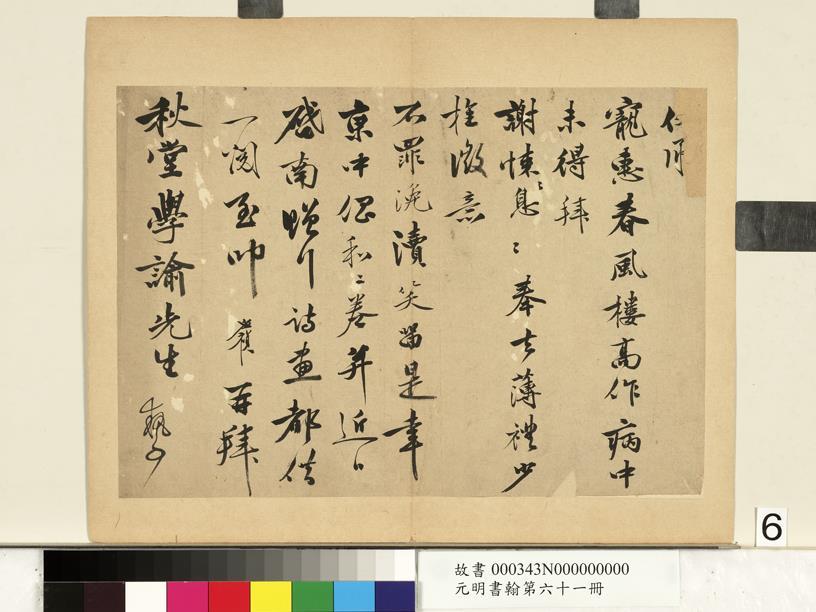 寵惠春風樓高作病中
未得拜
謝悚悚息息奉去薄禮少
推微意
不罪浼瀆笑留是幸
東中倡和和卷并近日
啓南贈行詩畫都借
一閱至叩 再拜
秋堂學諭先生
6
故書 000343N000000000
元明書翰第六十一冊